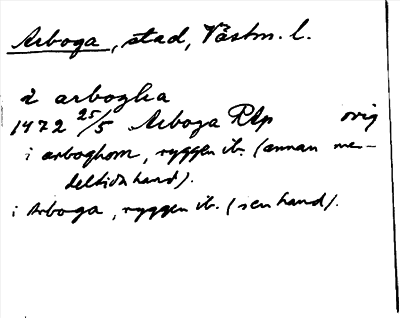 Arboga, stad, Västm. l.
i arbogha
1472 25/5 Arboga RAp orig
i arboghom, ryggen ib. (annan me-
deltida hand).
i Arboga, ryggen ib. (sen hand).